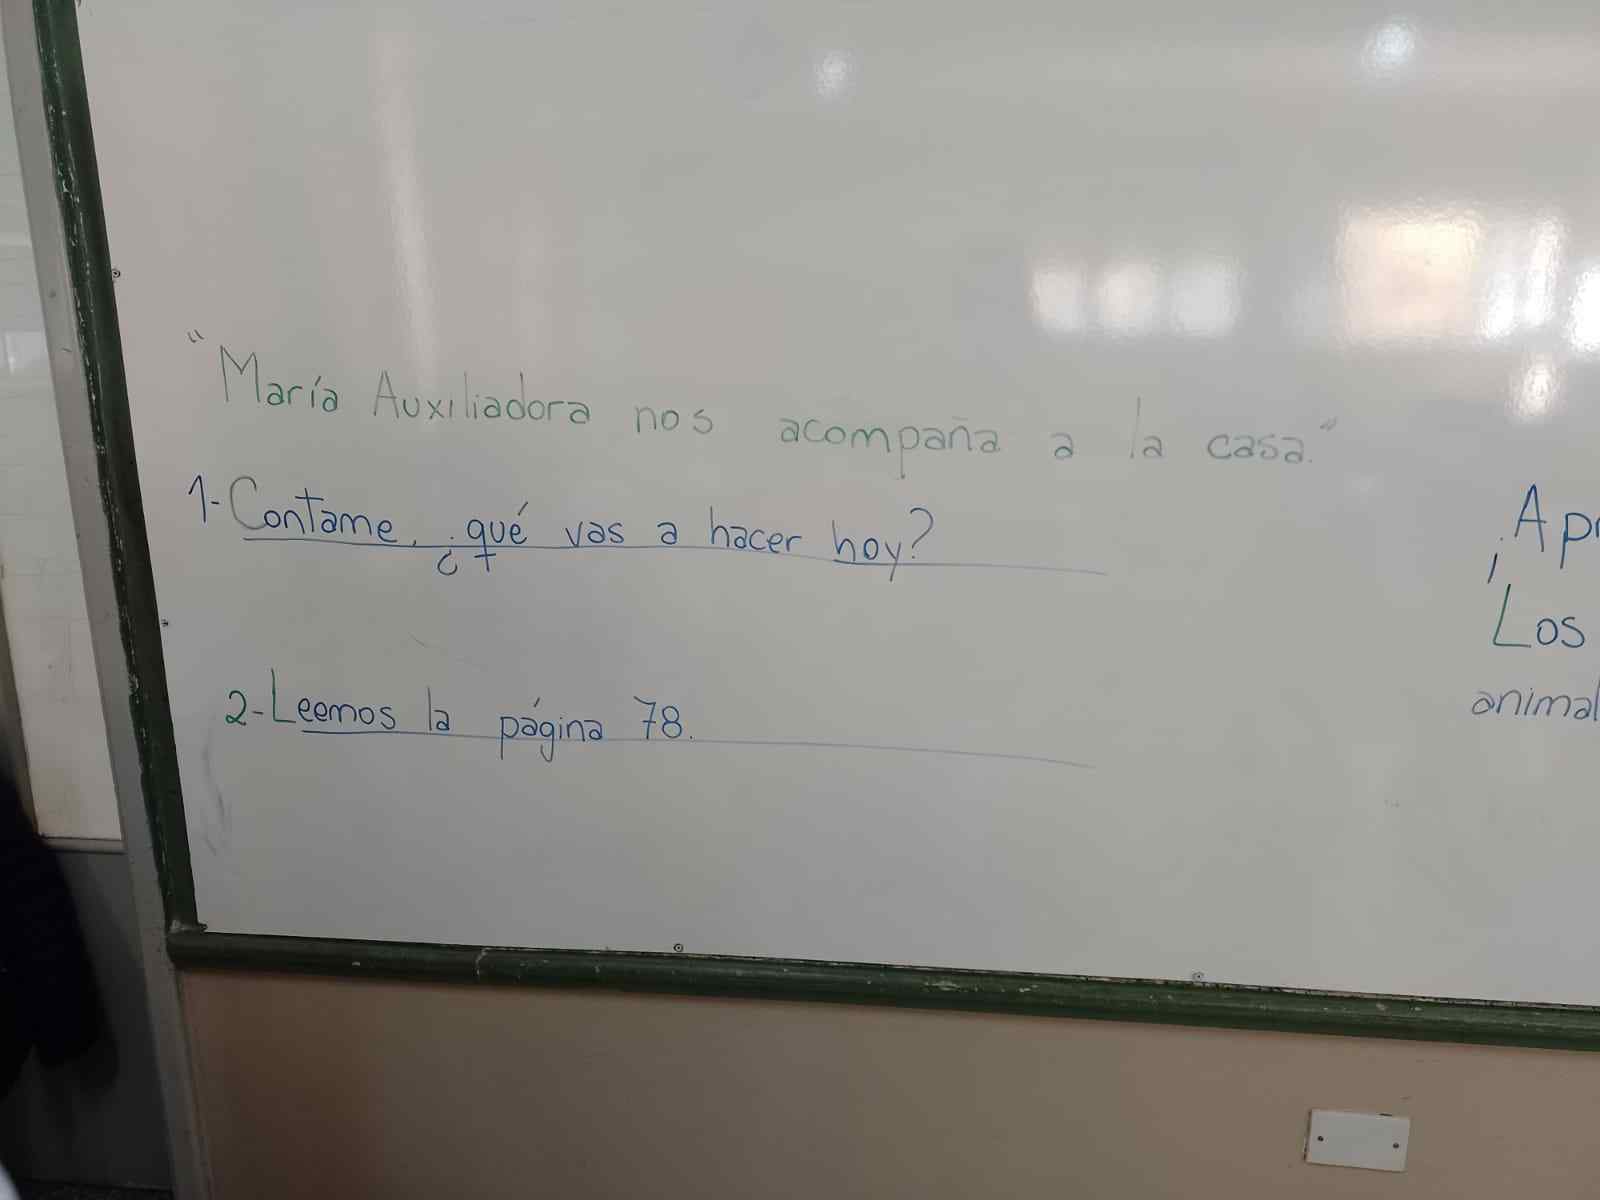 "María Auxiliadora nos acompaña a la casa."
1-Contame, ¿qué vas a hacer hoy?
2-Leemos la página 78.
¡Apr
Los
animal